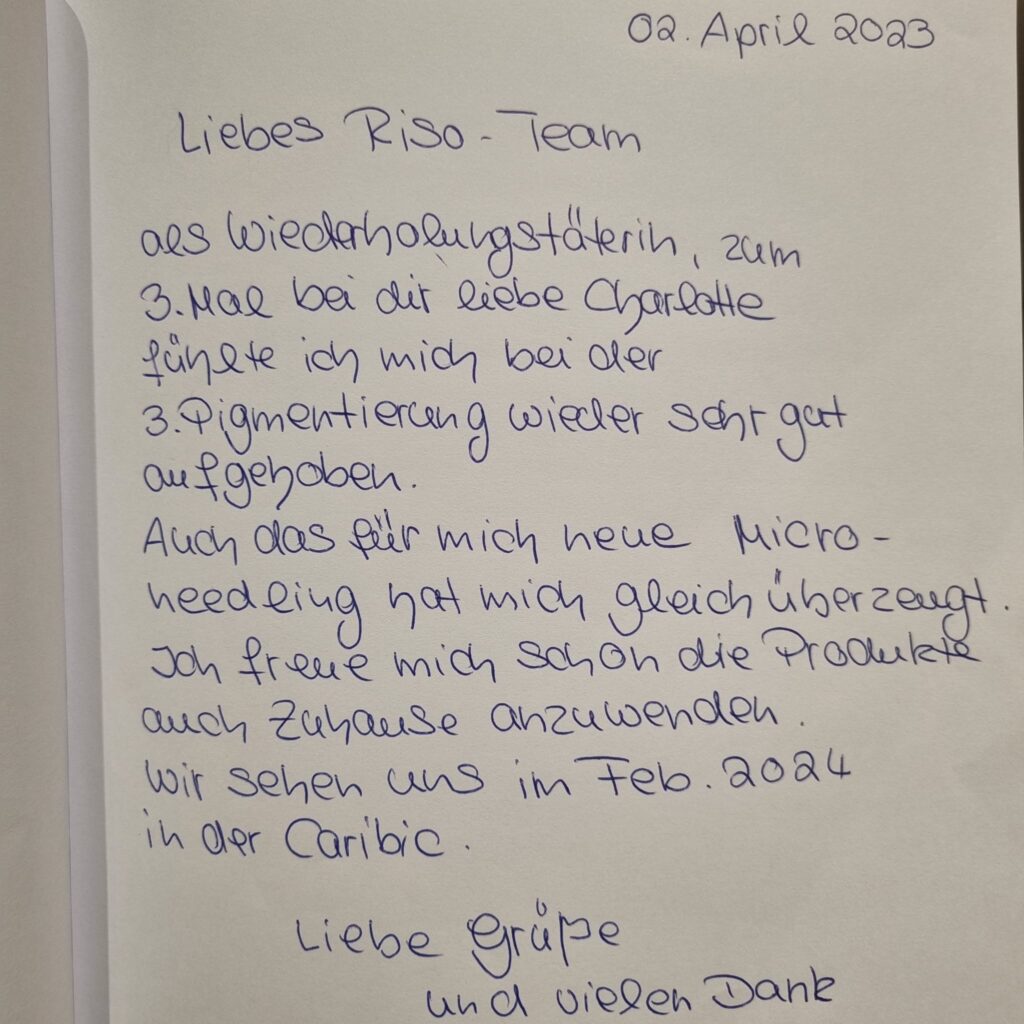 02. April 2023
Liebes Riso-Team
als Wiederholungstäterin, zum
3. Mal bei dir liebe Charlotte
fühlte ich mich bei der
3. Pigmentierung wieder sehr gut
aufgehoben.
Auch das für mich neue Micro-
needling hat mich gleich überzeugt.
Ich freue mich schon die Produkte
auch Zuhause anzuwenden.
Wir sehen uns im Feb. 2024
in der Caribic.
Liebe Grüße
und vielen Dank